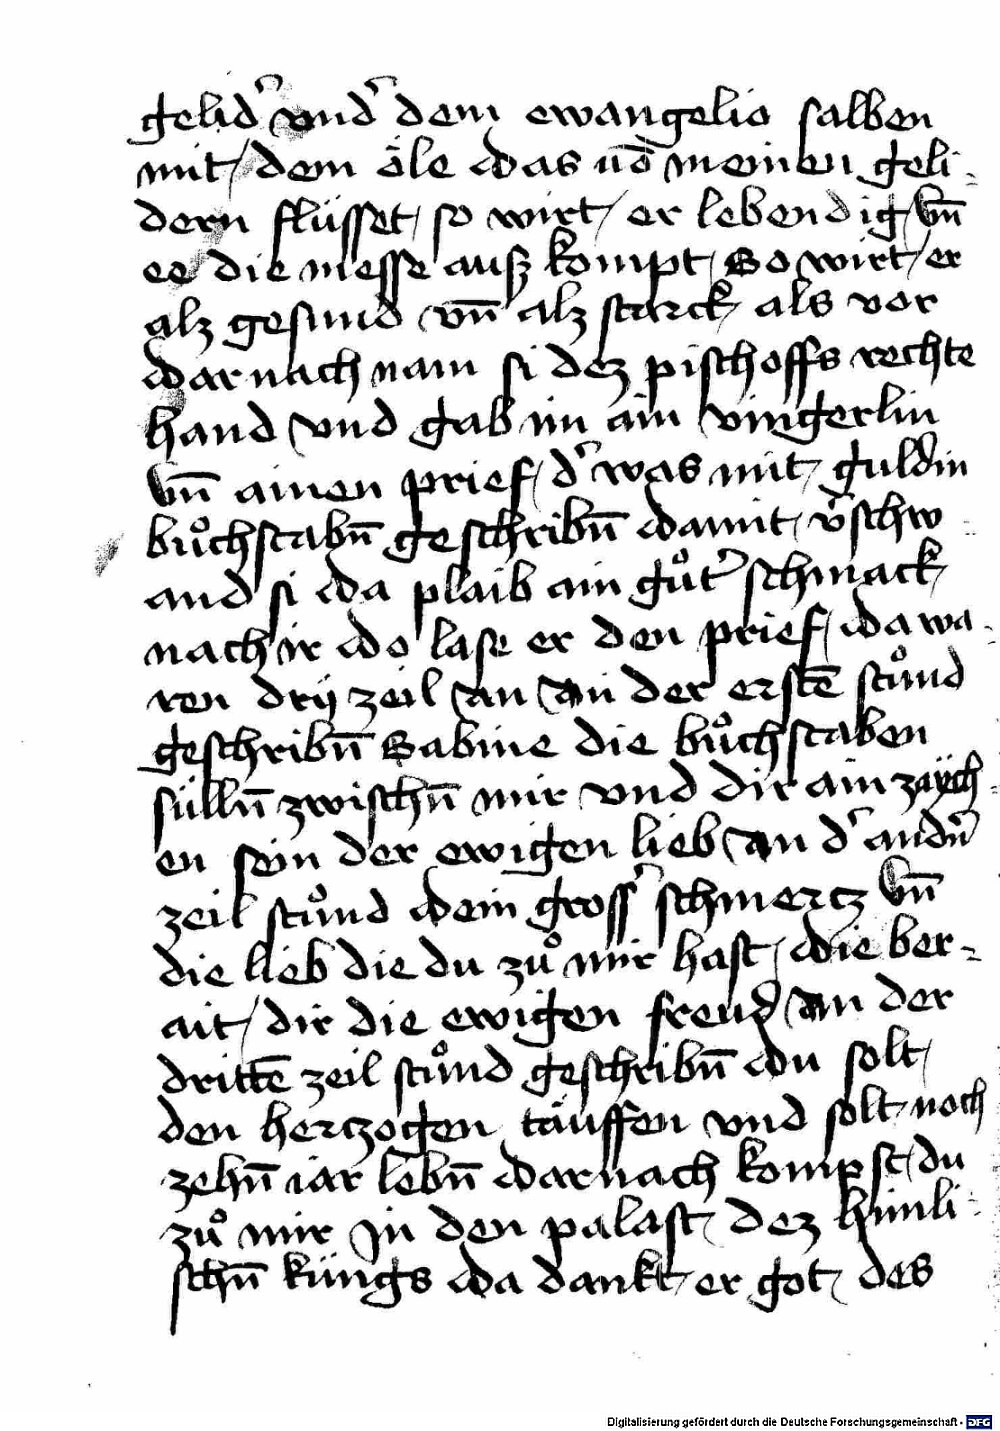 gelidʼ vndʼ dem ewangelio salben
mit dem äle das vō meinen geli-
dern flüsset so wirt er lebendig vn̄
ee die messe ausz kompt So wirt er
alz gesund vn̄ alz starck als vor
dar nach nam si dez pischoffs rechte
hand vnd gab im ain vingerlin
vn̄ ainen prief dʼ was mit guldin
bůchstabn̄ geschribn̄ damit vʼschw
and si da plaib ain gůtʼ schmack
nach ir do lase er den prief da wa-
ren drÿ zeil an an der erstē stůnd
geschribn̄ Sabine die bůchstaben
sülln̄ zwischn̄ mir vnd dir ain zaÿch-
en sein der ewigen lieb an dʼ andn̄
zeil stůnd dein grossʼ schmercz vn̄
die lieb die du zů mir hast die ber-
ait dir die ewigen freud an der
drittē zeil stůnd geschribn̄ du solt
den herczogen täuffen vnd solt noch
zehn̄ iar lebn̄ darnach kompst du
zů mir In den palast dez himli-
schn̄ küngs da dankt er got des
Digitalisierung gefördert durch die Deutsche Forschungsgemeinschaft - DFG